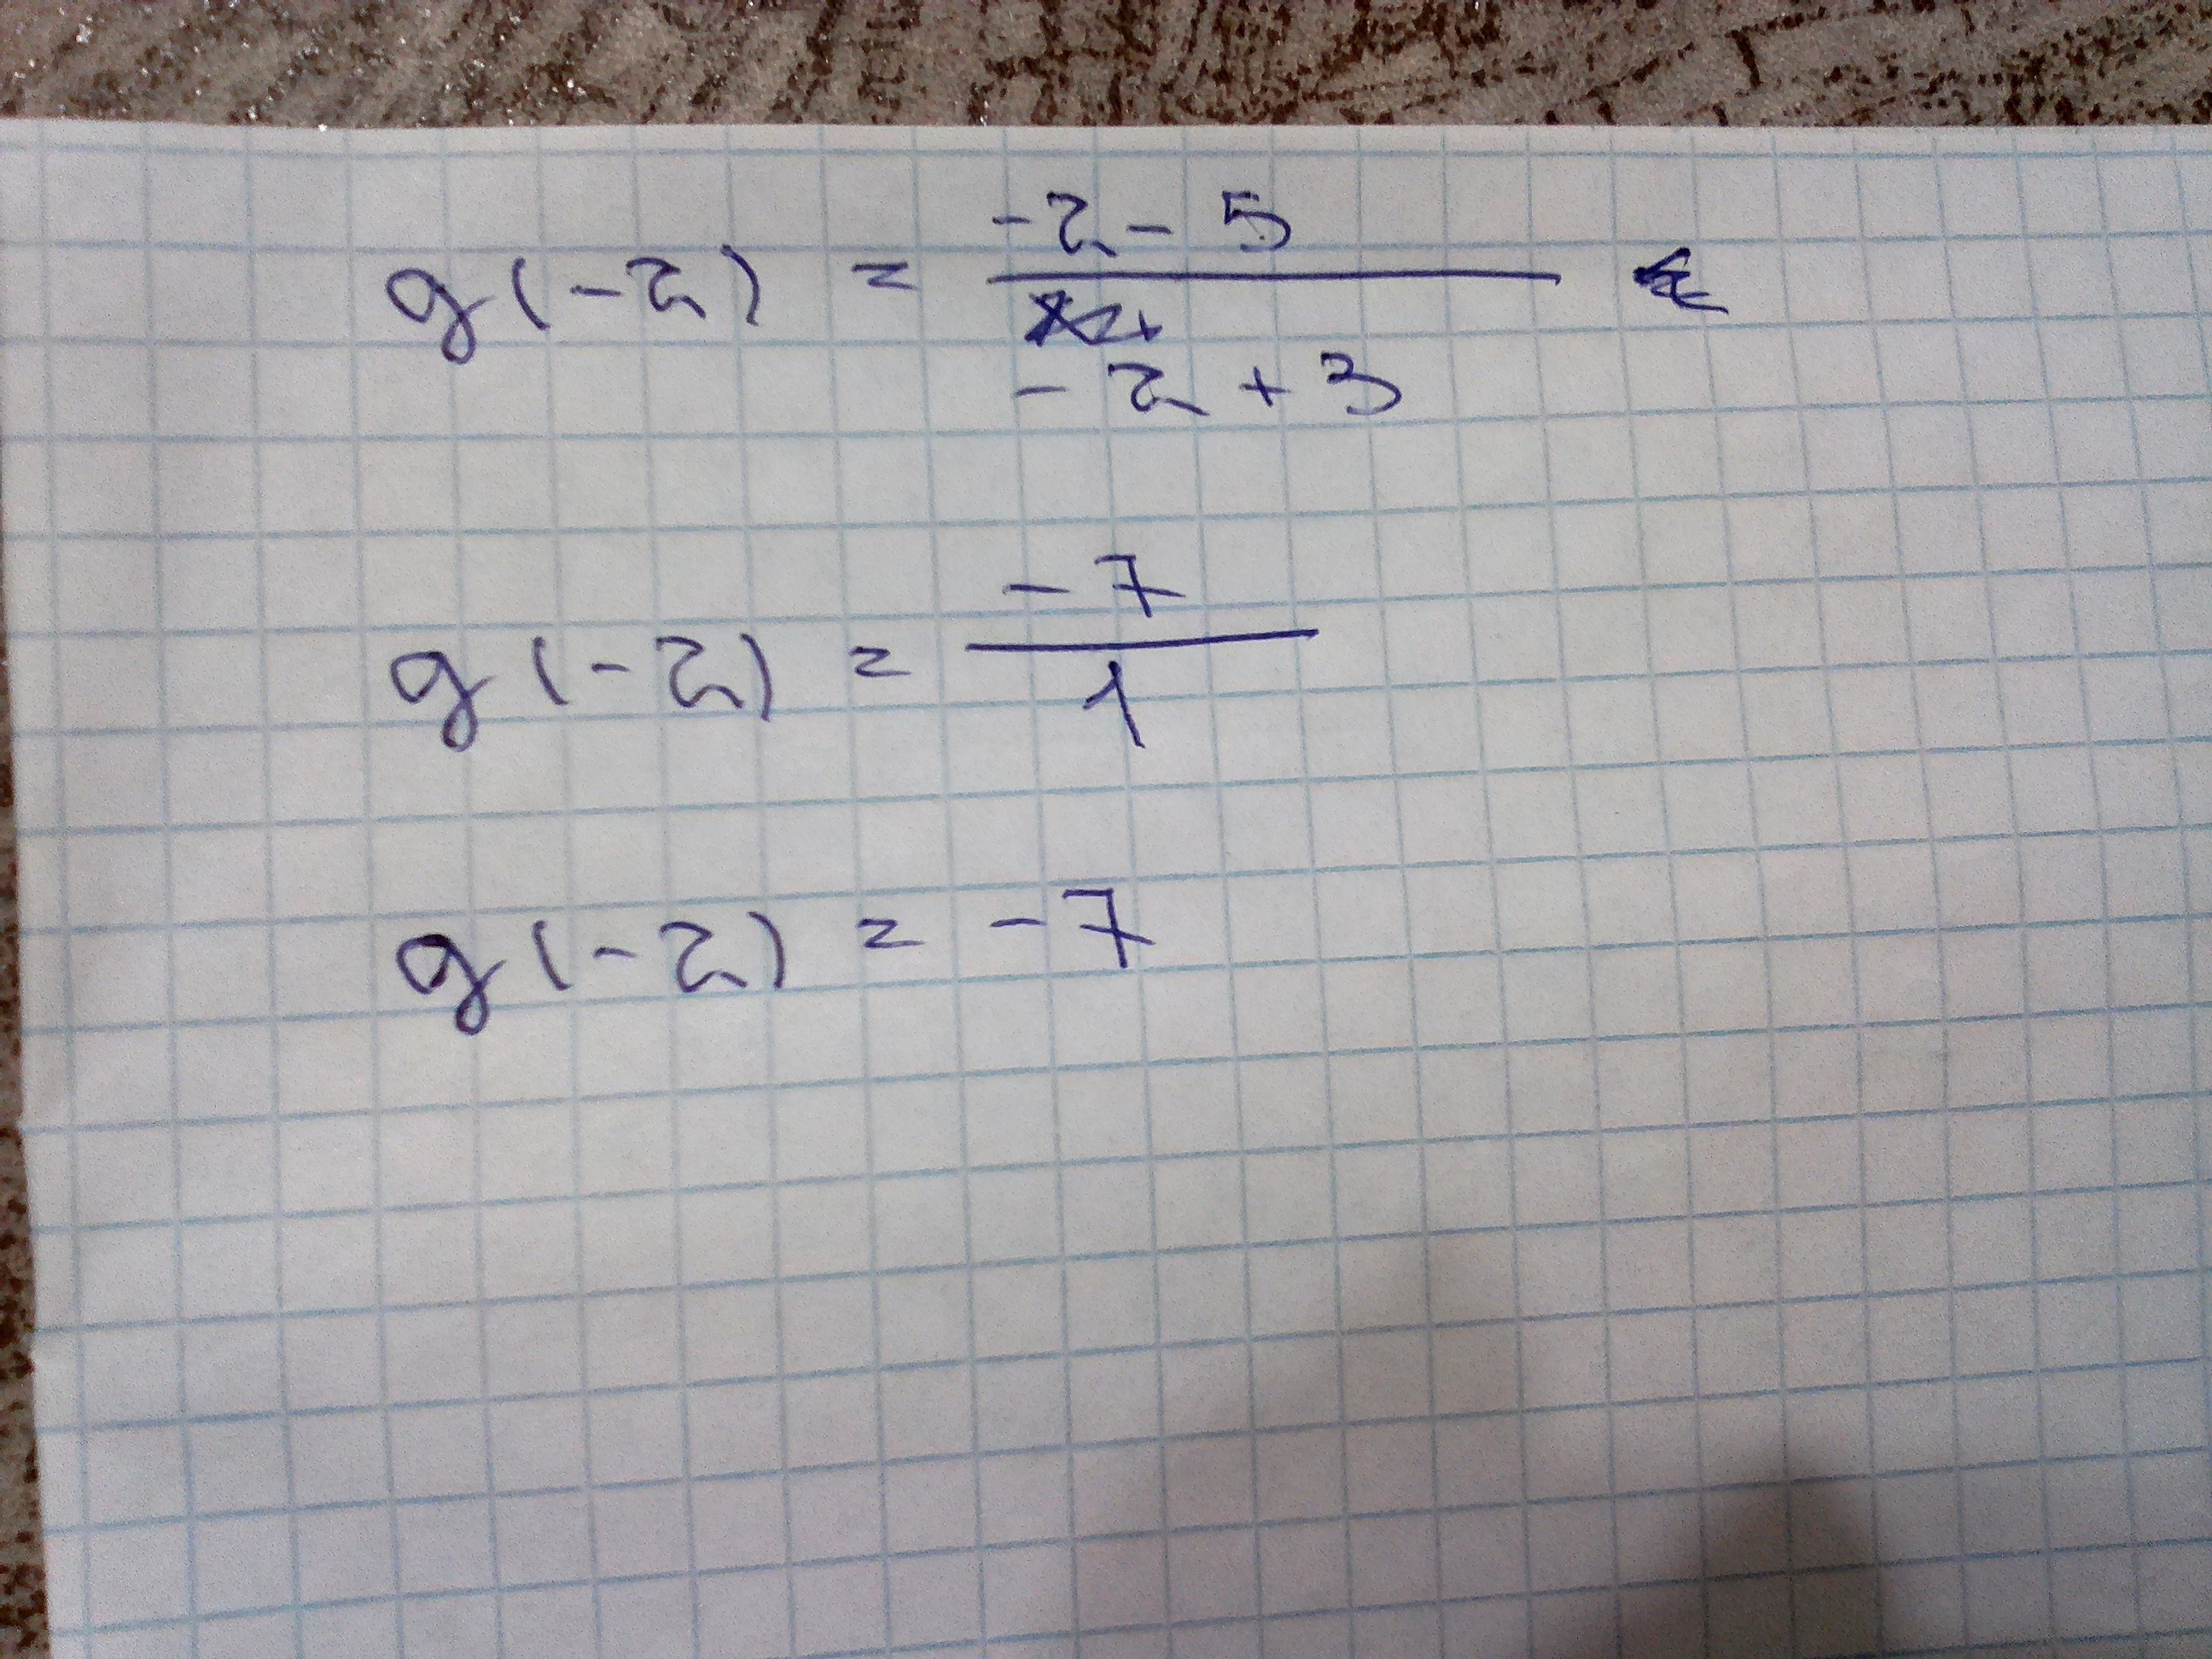 g(-2) = -2-5
-2+3
g(-2) = -7
1
g(-2) = -7